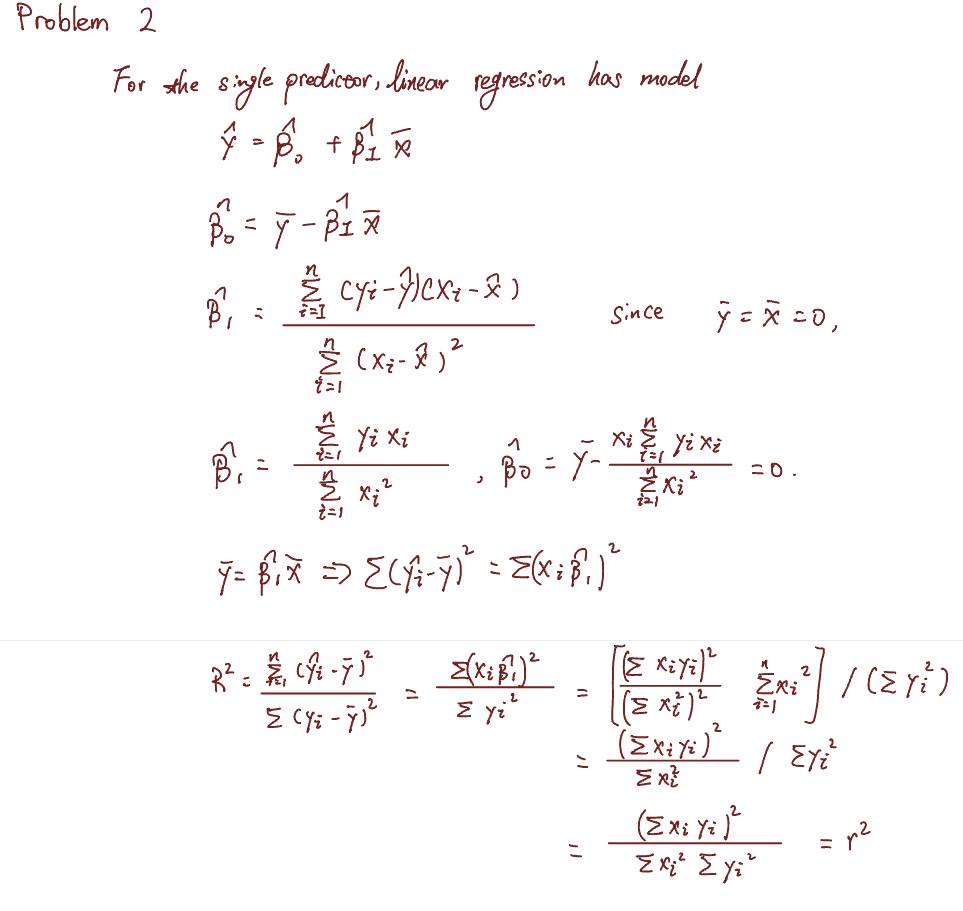 Problem 2
For the single predictor, linear regression has model
ŷ = β̂₀ + β̂₁ x̄
β̂₀ = ȳ - β̂₁ x̄
β̂₁ = \frac{\sum_{i=1}^{n} (yᵢ - ŷ)(xᵢ - x̂)}{\sum_{i=1}^{n} (xᵢ - x̂)²} since ȳ = x̄ = 0,
β̂₁ = \frac{\sum_{i=1}^{n} yᵢ xᵢ}{\sum_{i=1}^{n} xᵢ²} , β̂₀ = ȳ - \frac{xᵢ \sum_{i=1}^{n} yᵢ xᵢ}{\sum_{i=1}^{n} xᵢ²} = 0.
ȳ = β̂₁ x̄ ⇒ Σ(ŷᵢ - ȳ)² = Σ(xᵢ β̂₁)²
R² = \frac{\sum_{i=1}^{n} (ŷᵢ - ȳ)²}{Σ (yᵢ - ȳ)²} = \frac{Σ(xᵢ β̂₁)²}{Σ yᵢ²} = [\frac{(Σ xᵢyᵢ)²}{(Σ xᵢ²)²} \sum_{i=1}^{n} xᵢ²] / (Σ yᵢ²)
= \frac{(Σ xᵢ yᵢ)²}{Σ xᵢ²} / Σ yᵢ²
= \frac{(Σ xᵢ yᵢ)²}{Σ xᵢ² Σ yᵢ²} = r²